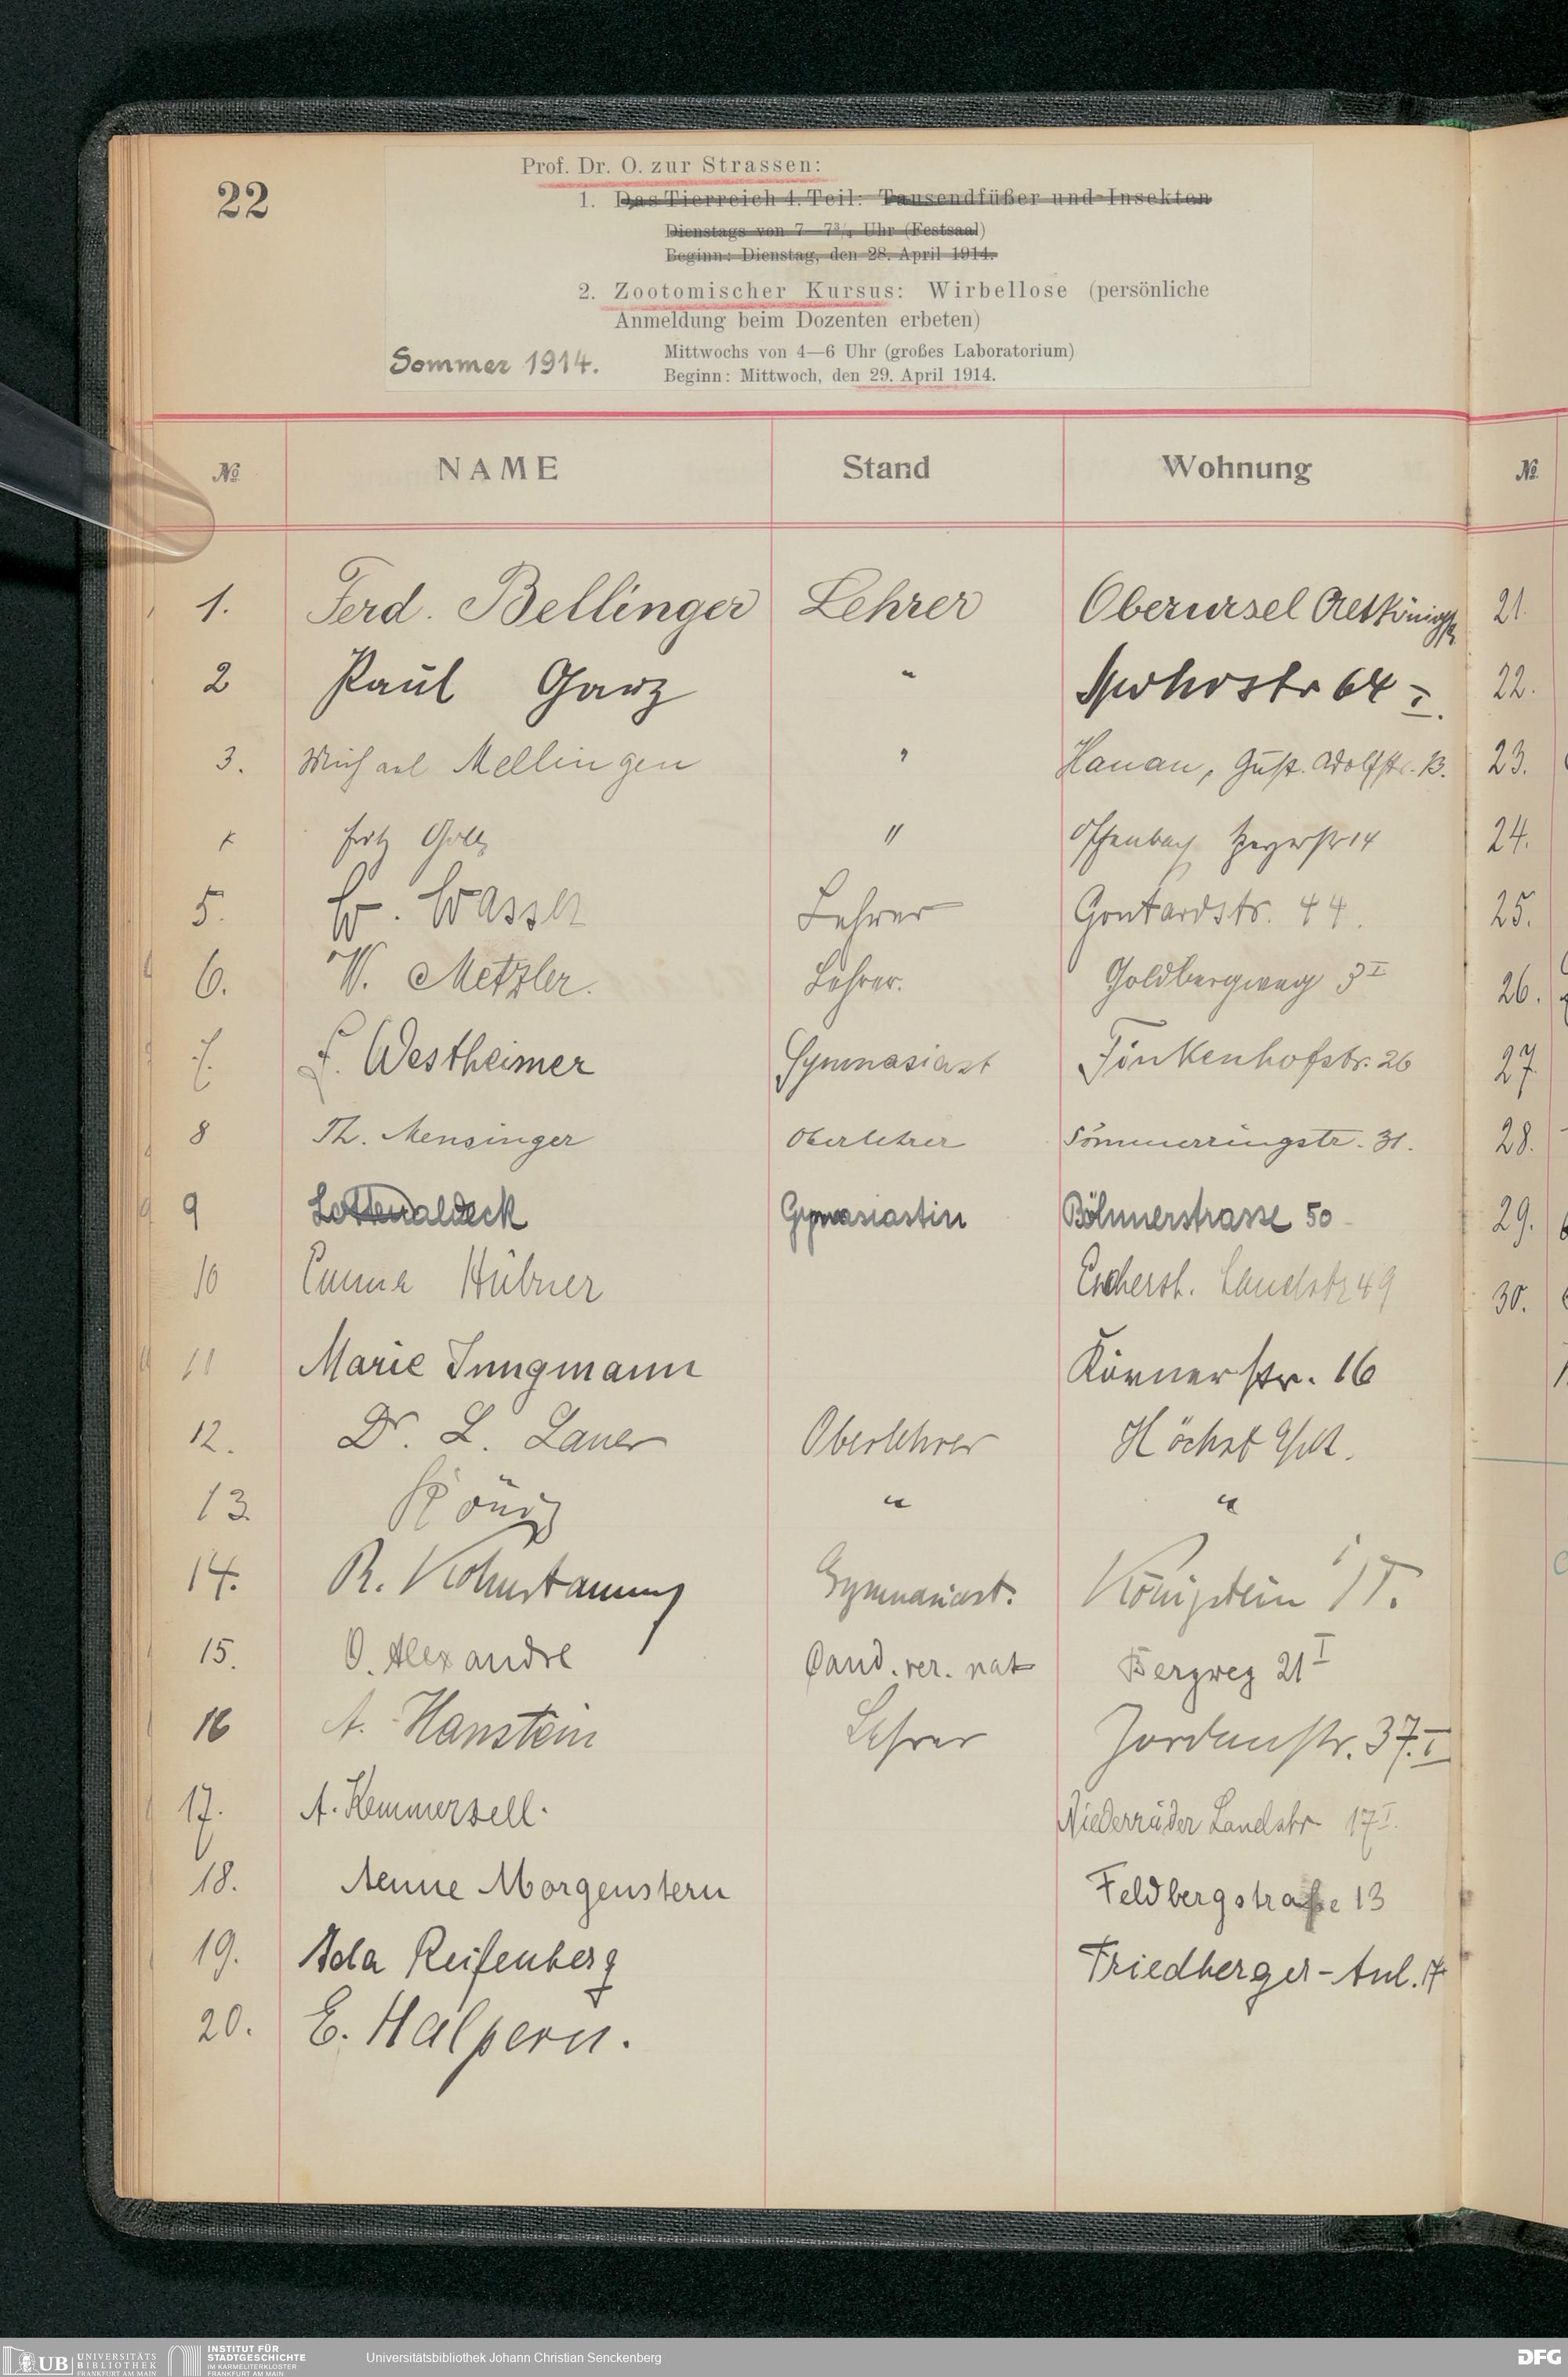 22
Prof. Dr. O. zur Strassen:
1. Das Tierreich 4. Teil: Tausendfüßer und Insekten
Dienstags von 7—7¾ Uhr (Festsaal)
Beginn: Dienstag, den 28. April 1914.
2. Zootomischer Kursus: Wirbellose (persönliche
Anmeldung beim Dozenten erbeten)
Mittwochs von 4—6 Uhr (großes Laboratorium)
Sommer 1914. Beginn: Mittwoch, den 29. April 1914.
№ NAME Stand Wohnung №
1. Ferd. Bellinger Lehrer Oberursel 21
2 Paul Garz " 64 I. 22.
3. Michael Mellingen " Hanau, Gust. Adolfstr. 13. 23.
Fritz " Offenbach 14 24.
5. W. Wasser Lehrer Gontardstr. 44. 25.
6. W. Metzler. Lehrer. Goldbergweg 3 I 26.
7. Westheimer Gymnasiast Finkenhofstr. 26 27
8 Th. Mensinger Oberlehrer Sömmerringstr. 31. 28.
9 Gymnasiastin Böhmerstrasse 50 29.
10 Emma Hübner Eschersh. Landstr 49 30.
11 Marie Jungmann Körnerstr. 16
12. Dr. L. Lauer Oberlehrer Höchst a/M.
13. König " "
14. R. Kohnstamm Gymnasiast. Königstein i/T.
15. O. Alexandre Cand. rer. nat Bergweg 21 I
16 A. Hanstein Lehrer Jordanstr. 37. I
17. A. Kemmerzell. Niederräder Landstr 17 I.
18. Aenne Morgenstern Feldbergstraße 13
19. Ada Reifenberg Friedberger-Anl. 17
20. E. Halpern.
UB UNIVERSITÄTS
BIBLIOTHEK
FRANKFURT AM MAIN
INSTITUT FÜR
STADTGESCHICHTE
IM KARMELITERKLOSTER
FRANKFURT AM MAIN
Universitätsbibliothek Johann Christian Senckenberg
DFG